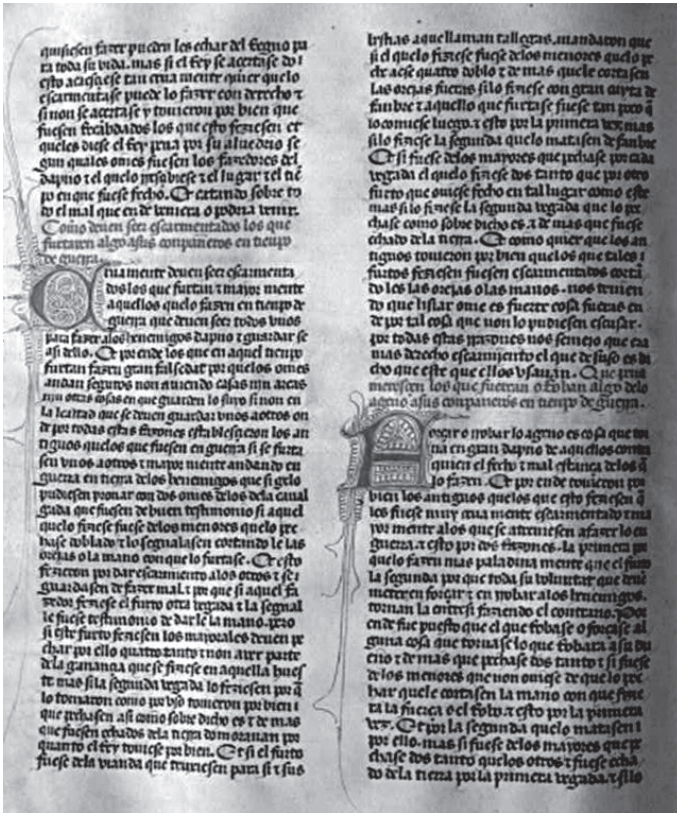 quisiesen fazer pueden les echar del Regno pa
ra toda su vida. mas si el Rey se acertase do
esto acaesçese tan crua mente quier quelo
escarmentase puede lo fazer con derecho τ
si non se acertase y touieron por bien que
fuesen recabdados los que esto feziesen et
queles diese el Rey pena por su aluedrio se
gun quales omes fuesen los fazedores del
dapno τ el quelo resçibiese τ el lugar τ el tiē
po en que fuese fecho. Et catando sobre to
do el mal que ende veniera o podria venir.
Como deuen ser escarmentados los que
furtaren algo a sus conpañeros en tienpo
de guerra.
Crua mente deuen ser escarmenta
dos los que furtan τ mayor mente
aquellos quelo fazen en tienpo de
guerra que deuen ser todos vnos
para fazer alos henemigos dapno τ guardar se
asi dello. Et por ende los que en aquel tienpo
furtan fazen gran falsedat por quelos omes
andan seguros non auiendo casas nin arcas
nin otras cosas en que guarden lo suyo si non en
la lealtad que se deuen guardar vnos a otros on
de por todas estas Razones establesçieron los an
tiguos quelos que fuesen en guerra si se furta
sen vnos a otros τ mayor mente andando en
guerra en tierra delos henemigos que si gelo
pudiesen prouar con dos omes delos dela caual
gada que fuesen de buen testimonio si aquel
quelo fiziese fuese delos menores quelo pe
chase doblado τ lo señalasen cortando le las
orejas o la mano con que lo furtase. Et esto
fezieron por dar escarmiento alos otros τ se
guardasen de fazer mal. τ por que si aquel fa
zedor feziese el furto otra vegada τ la señal
le fuese testimonio de darle la mano. pero
si este furto feziesen los mayorales deuen pe
char por ello quatro tanto τ non auer parte
dela ganançia que se fiziese en aquella hues
te mas si la segunda vegada lo feziesen por q̄
lo tomaron como por vso touieron por bien
que pechasen asi como sobre dicho es τ de mas
que fuesen echados dela tierra do morauan por
quanto el Rey touiese por bien. Et si el furto
fuese dela vianda que truxiesen para si τ sus
bestias a que llaman tallegas. mandaron que
si el quelo fiziese fuese delos menores quelo pe
chase quatro doblo τ de mas quele cortasen
las orejas fueras si lo fiziese con gran cuyta de
fanbre τ aquello que furtase fuese tan poco q̄
lo comiese luego. τ esto por la primera vez mas
si lo fiziese la segunda quelo matasen de fanbre
Et si fuese delos mayores que pechase por cada
vegada el quelo fiziese dos tanto que por otro
furto que ouiese fecho en tal lugar como este
mas si lo fiziese la segunda vegada que lo pe
chase como sobre dicho es. τ de mas que fuese
echado dela tierra. Et como quier que los an
tiguos touieron por bien quelos que tales
furtos feziesen fuesen escarmentados cortā
do les las orejas o las manos. nos teniendo
que lisiar ome es fuerte cosa fueras en
de por tal cosa que non lo pudiesen escusar.
por todas estas Razones nos semejo que era
mas derecho escarmiento el que de suso es di
cho que este que ellos vsauan. Que pena
meresçen los que fuerçan o Roban algo delo
ageno a sus conpañeros en tienpo de guerra.
Forçar o Robar lo ageno es cosa que tor
na en gran dapno de aquellos contra
quien es fecho τ mal estança delos q̄
lo fazen. Et por ende touieron por
bien los antiguos quelos que esto feziesen q̄
les fuese muy crua mente escarmentado τ ma
yor mente alos que se atreuiesen a fazer lo en
guerra. τ esto por dos Razones. la primera por
quelo fazen mas paladina mente que el furto
la segunda por que toda su voluntar que deuē
meter en forçar τ en Robar alos henemigos.
tornan la entresi faziendo el contrario. Por
ende fue puesto que el que Robase o forçase al
guna cosa que tornase lo que Robara a su du
eño τ de mas que pechase dos tanto τ si fuese
de los menores que non ouiese de que lo pe
char quele cortasen la mano con que fizie
ra la fuerça o el Robo. τ esto por la primera
vez. Et por la segunda quelo matasen
por ello. mas si fuese delos mayores que pe
chase dos tanto quelos otros τ fuese echa
do dela tierra por la primera vegada. τ si lo